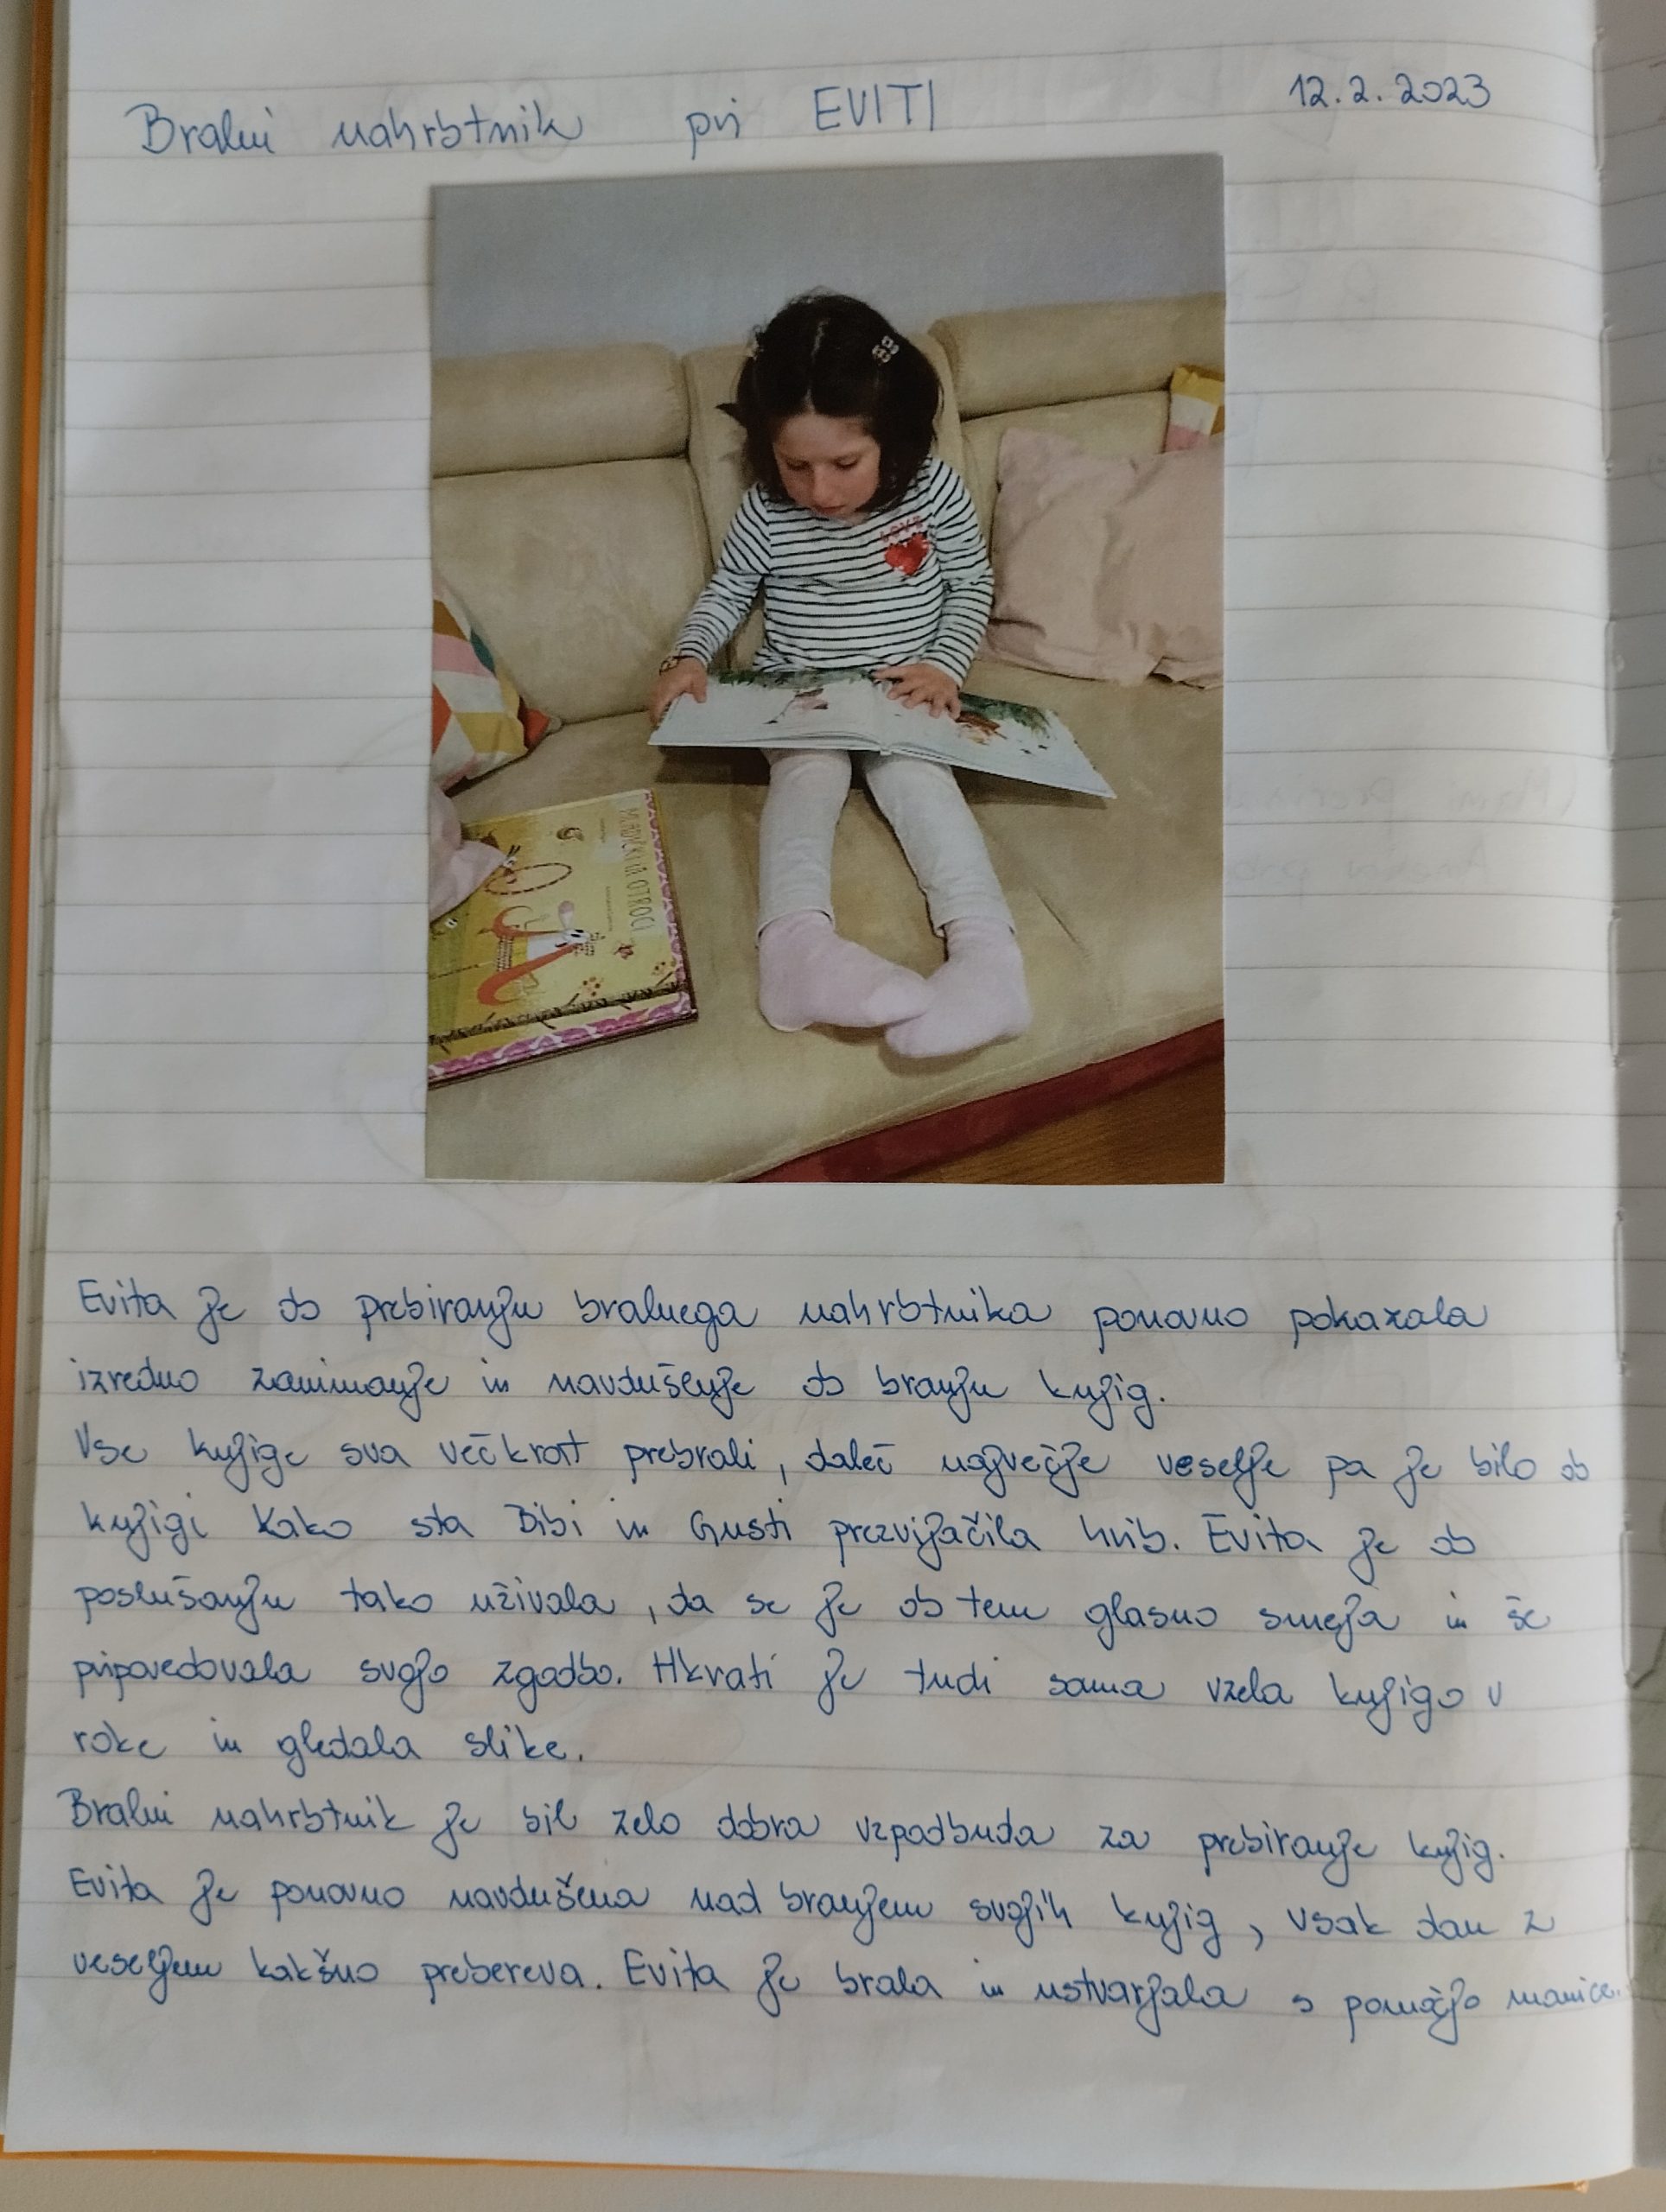 Bralni nahrbtnik pri EVITI
12.2.2023
LOVE
OTROCI
Evita je ob prebiranju bralnega nahrbtnika ponovno pokazala
izredno zanimanje in navdušenje ob branju knjig.
Vse knjige sva večkrat prebrali, daleč največje veselje pa je bilo ob
knjigi Kako sta Bibi in Gusti prezvijačila hrib. Evita je ob
poslušanju tako uživala, da se je ob tem glasno smeja in še
pripovedovala svojo zgodbo. Hkrati je tudi sama vzela knjigo v
roke in gledala slike.
Bralni nahrbtnik je bil zelo dobra vzpodbuda za prebiranje knjig.
Evita je ponovno navdušena nad branjem svojih knjig, vsak dan z
veseljem kakšno prebereva. Evita je brala in ustvarjala s pomočjo mamice.